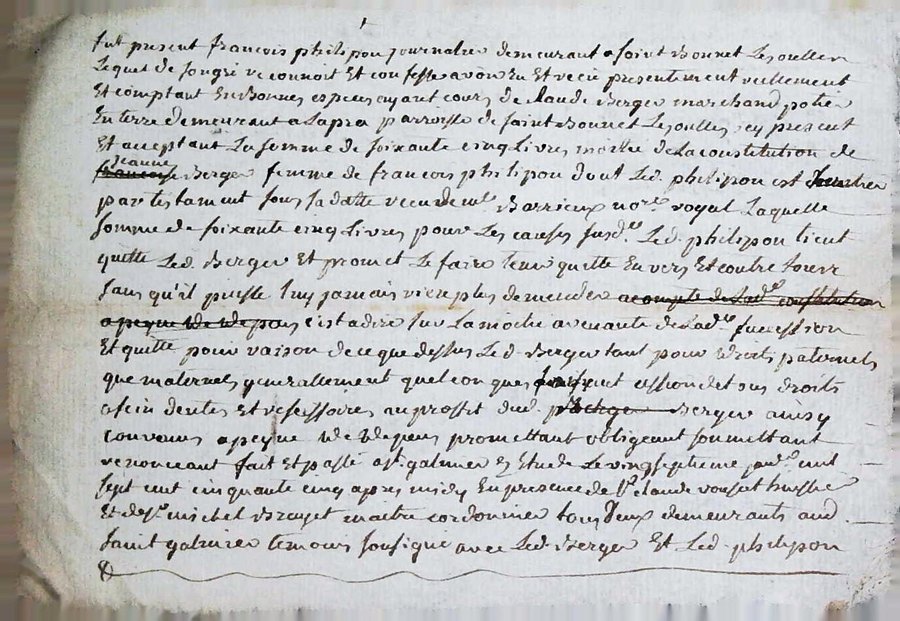 fut present francois philipon journalier demeurant a saint Bonnet Les oulles
Lequel de son gré reconnoit Et confesse avoir Eu Et recu presentement reellement
Et comptant En Bonnes especes ayant cours de claude Berger marchand potier
En terre demeurant a Lapra parroisse de saint Bonnet Les oulles, cy present
Et acceptant La somme de soixante cinq Livres, moitié de La constitution de
jeanne
francoise Berger femme de francois philipon dont Led. philipon est heritier
par testament sous sa datte receu de me Barrieux nore. royal Laquelle
somme de soixante cinq Livres pour Les causes susd. Led. philipon tient
quitte Led. Berger Et promet Le faire tenir quitte Envers Et contre
sans qu'il puisse Luy jamais rien plus demander acompte de Lad. constitution
apeyne de depans c'est a dire sur La moitié avenante de Lad. succession
Et quitte pour raison de ce que dessus Led. Berger tant pour droits paternels
que maternels generallement quelconques cession de tous droits
rescindents Et rescissoires au proffit dud. Berger ainsy
convenus a peyne de depens promettant obligeant soumettant
renonceant fait Et passé a st. galmier Etude Le vingt septieme mil
sept cent cinquante cinq apres midy En presence de sr. claude huissier
Et de sr. michel maitre cordonnier tous deux demeurants aud.
saint galmier temoins sousigné avec Led. Berger Et Led. philipon